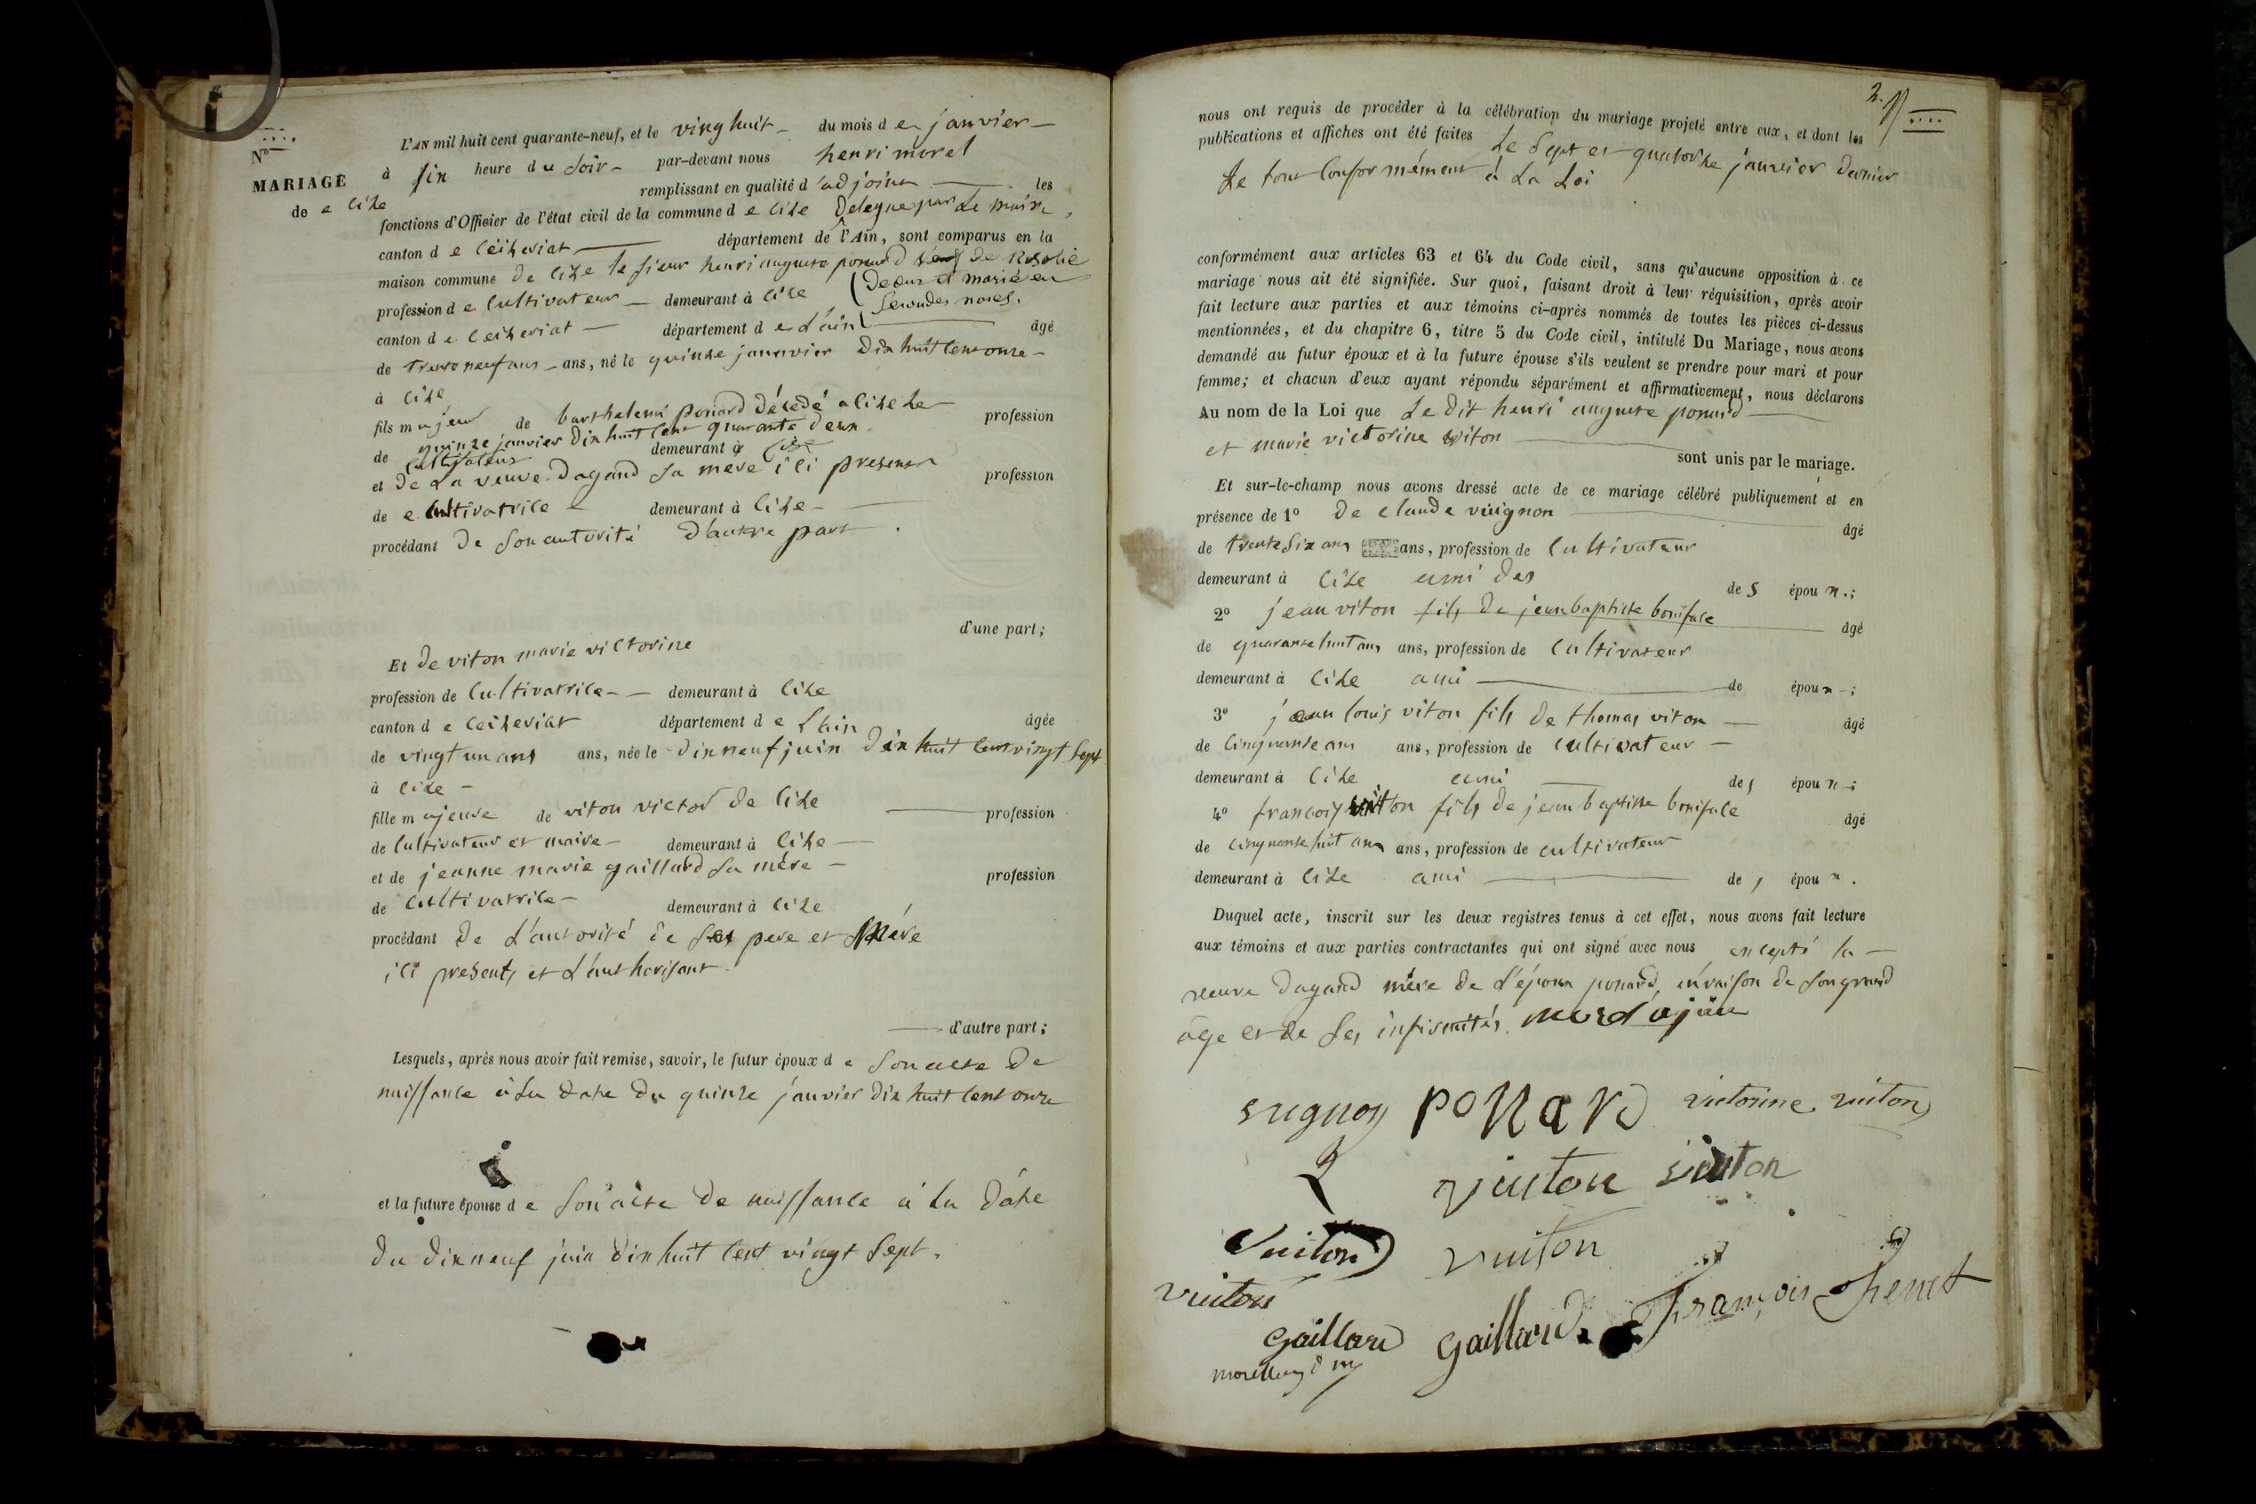 N°
MARIAGE
de e cize
L'AN mil huit cent quarante-neuf, et le ving huit du mois d e janvier
à six heure du soir par-devant nous henri morel
remplissant en qualité d'adjoint les
fonctions d'Officier de l'état civil de la commune d e cize delegue par Le maire,
canton d e ceizeriat département de l'Ain, sont comparus en la
maison commune de cize le sieur henri auguste ponard veuf de Rosalie
(Decour et marié en
profession d e cultivateur demeurant à cize
secondes noces.
canton d e ceizeriat département d e L'ain âgé
de trente neuf ans ans, né le quinze janvier dix huit cent onze
à cize
fils majeur de barthelemi ponard décédé a cize le profession
quinze janvier dix huit cent quarante deux.
de cultivateur demeurant à cize
et de La veuve dagand sa mère ici presente profession
de e cultivatrice demeurant à cize
procédant de son autorité d'autre part.
d'une part;
Et de viton marie victorine
profession de cultivatrice demeurant à cize
canton d e ceizeriat département d e Lain âgée
de vingt un ans ans, née le dixneuf juin dix huit cent vingt sept
à cize
fille majeure de viton victor de cize profession
de cultivateur et maire demeurant à cize
et de jeanne marie gaillard sa mère profession
de cultivatrice demeurant à cize
procédant de L'autorité de ses pere et Mére
ici presents et L'authorisant.
d'autre part;
Lesquels, après nous avoir fait remise, savoir, le futur époux d e son acte de
naissance à La date du quinze janvier dix huit cent onze
et la future épouse d e son acte de naissance à La date
du dixneuf juin dix huit cent vingt sept.
2.
nous ont requis de procéder à la célébration du mariage projeté entre eux, et dont les
publications et affiches ont été faites Le sept et quatorze janvier dernier
Le tout conformément à La Loi
conformément aux articles 63 et 64 du Code civil, sans qu'aucune opposition à ce
mariage nous ait été signifiée. Sur quoi, faisant droit à leur réquisition, après avoir
fait lecture aux parties et aux témoins ci-après nommés de toutes les pièces ci-dessus
mentionnées, et du chapitre 6, titre 5 du Code civil, intitulé Du Mariage, nous avons
demandé au futur époux et à la future épouse s'ils veulent se prendre pour mari et pour
femme; et chacun d'eux ayant répondu séparément et affirmativement, nous déclarons
Au nom de la Loi que Le dit henri auguste ponard
et marie victorine viton
sont unis par le mariage.
Et sur-le-champ nous avons dressé acte de ce mariage célébré publiquement et en
présence de 1° de claude vuignon âgé
de trente six ans ans, profession de cultivateur
demeurant à cize ami des de s époux.;
2° jean viton fils de jean baptiste boniface âgé
de quarante huit ans ans, profession de cultivateur
demeurant à cize ami de époux;
3° jean louis viton fils de thomas viton âgé
de cinquante ans ans, profession de cultivateur
demeurant à cize ami de s époux;
4° francois viton fils de jean baptiste boniface âgé
de cinquante huit ans ans, profession de cultivateur
demeurant à cize ami de s époux.
Duquel acte, inscrit sur les deux registres tenus à cet effet, nous avons fait lecture
aux témoins et aux parties contractantes qui ont signé avec nous excepté la
veuve dagand mére de L'époux ponard en raison de son grand
âge et de ses infirmités.
ponard victorine vuiton
vuiton vuiton
vuiton vuiton
vuiton
gaillard gaillard François